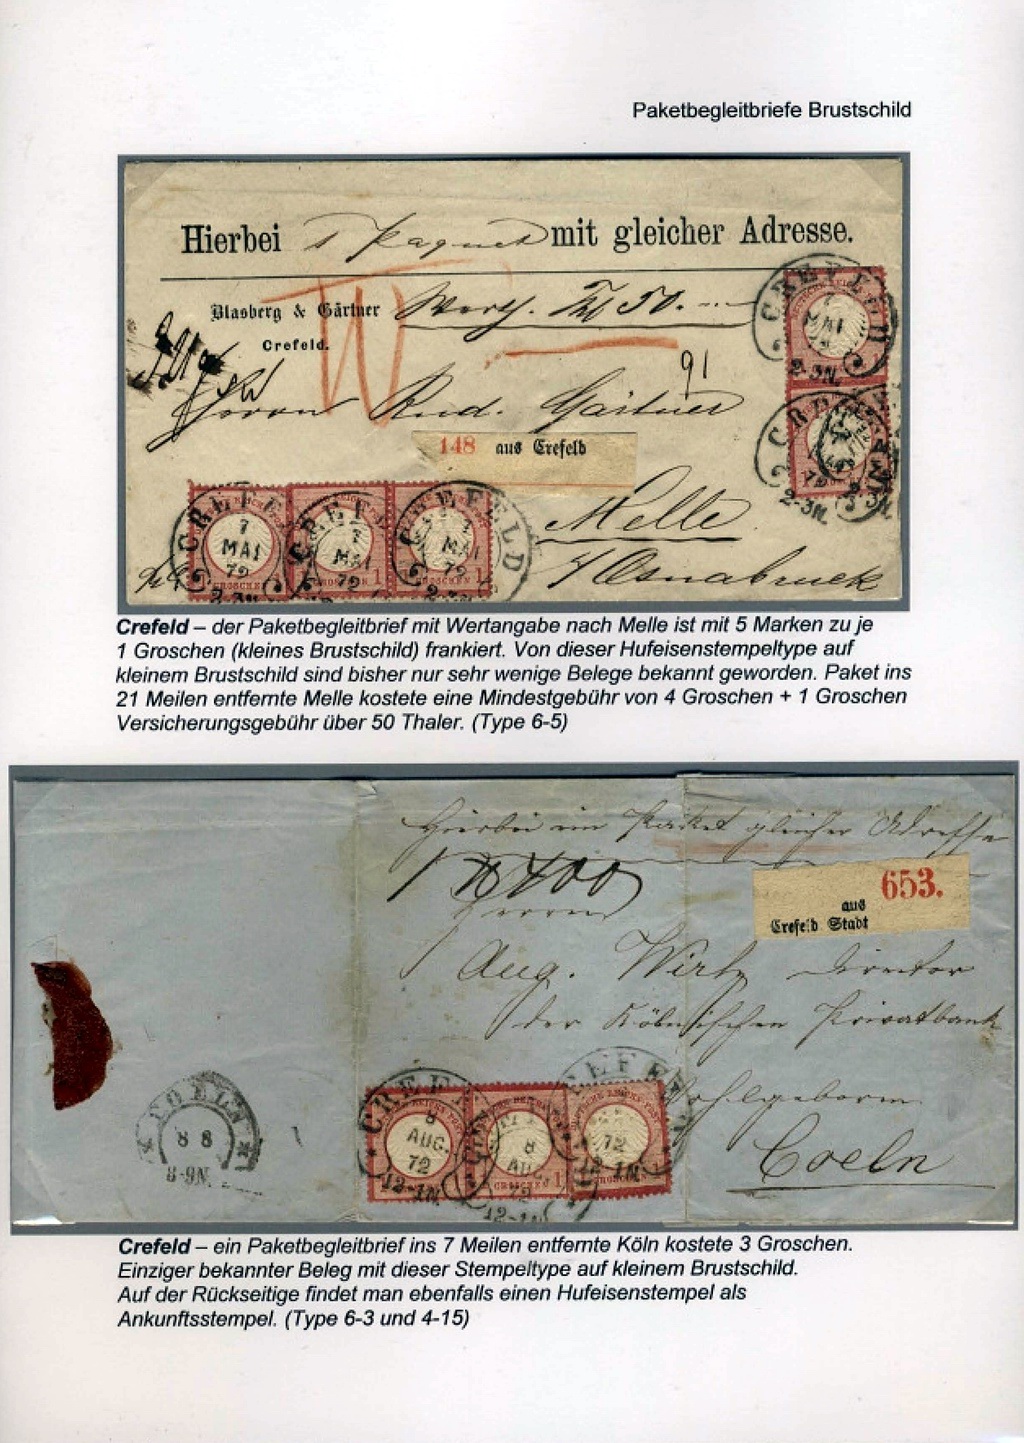 Paketbegleitbriefe Brustschild
Hierbei 1 Paquet mit gleicher Adresse.
Blasberg & Gärtner
Crefeld.
Werth. 50.
91
Herrn Rud. Gärtner
148 aus Crefeld
Melle
Osnabrueck
CREFELD
7
MAI
72
2-3N.
CREFELD
72
2-3N.
CREFELD
7
MAI
72
2-3N.
CREFELD
7
MAI
72
CREFELD
MAI
72
Crefeld – der Paketbegleitbrief mit Wertangabe nach Melle ist mit 5 Marken zu je
1 Groschen (kleines Brustschild) frankiert. Von dieser Hufeisenstempeltype auf
kleinem Brustschild sind bisher nur sehr wenige Belege bekannt geworden. Paket ins
21 Meilen entfernte Melle kostete eine Mindestgebühr von 4 Groschen + 1 Groschen
Versicherungsgebühr über 50 Thaler. (Type 6-5)
Hierbei ein Packet gleicher Adresse
653.
aus
Crefeld Stadt
Herrn
Aug. Wirtz Director
der Kölnischen Privatbank
Wohlgeborn
Coeln
COELN
8 8
8-9N.
CREFELD
8
AUG.
72
12-1N.
8
AUG.
72
12-1N
CREFELD
72
12-1N
Crefeld – ein Paketbegleitbrief ins 7 Meilen entfernte Köln kostete 3 Groschen.
Einziger bekannter Beleg mit dieser Stempeltype auf kleinem Brustschild.
Auf der Rückseitige findet man ebenfalls einen Hufeisenstempel als
Ankunftsstempel. (Type 6-3 und 4-15)